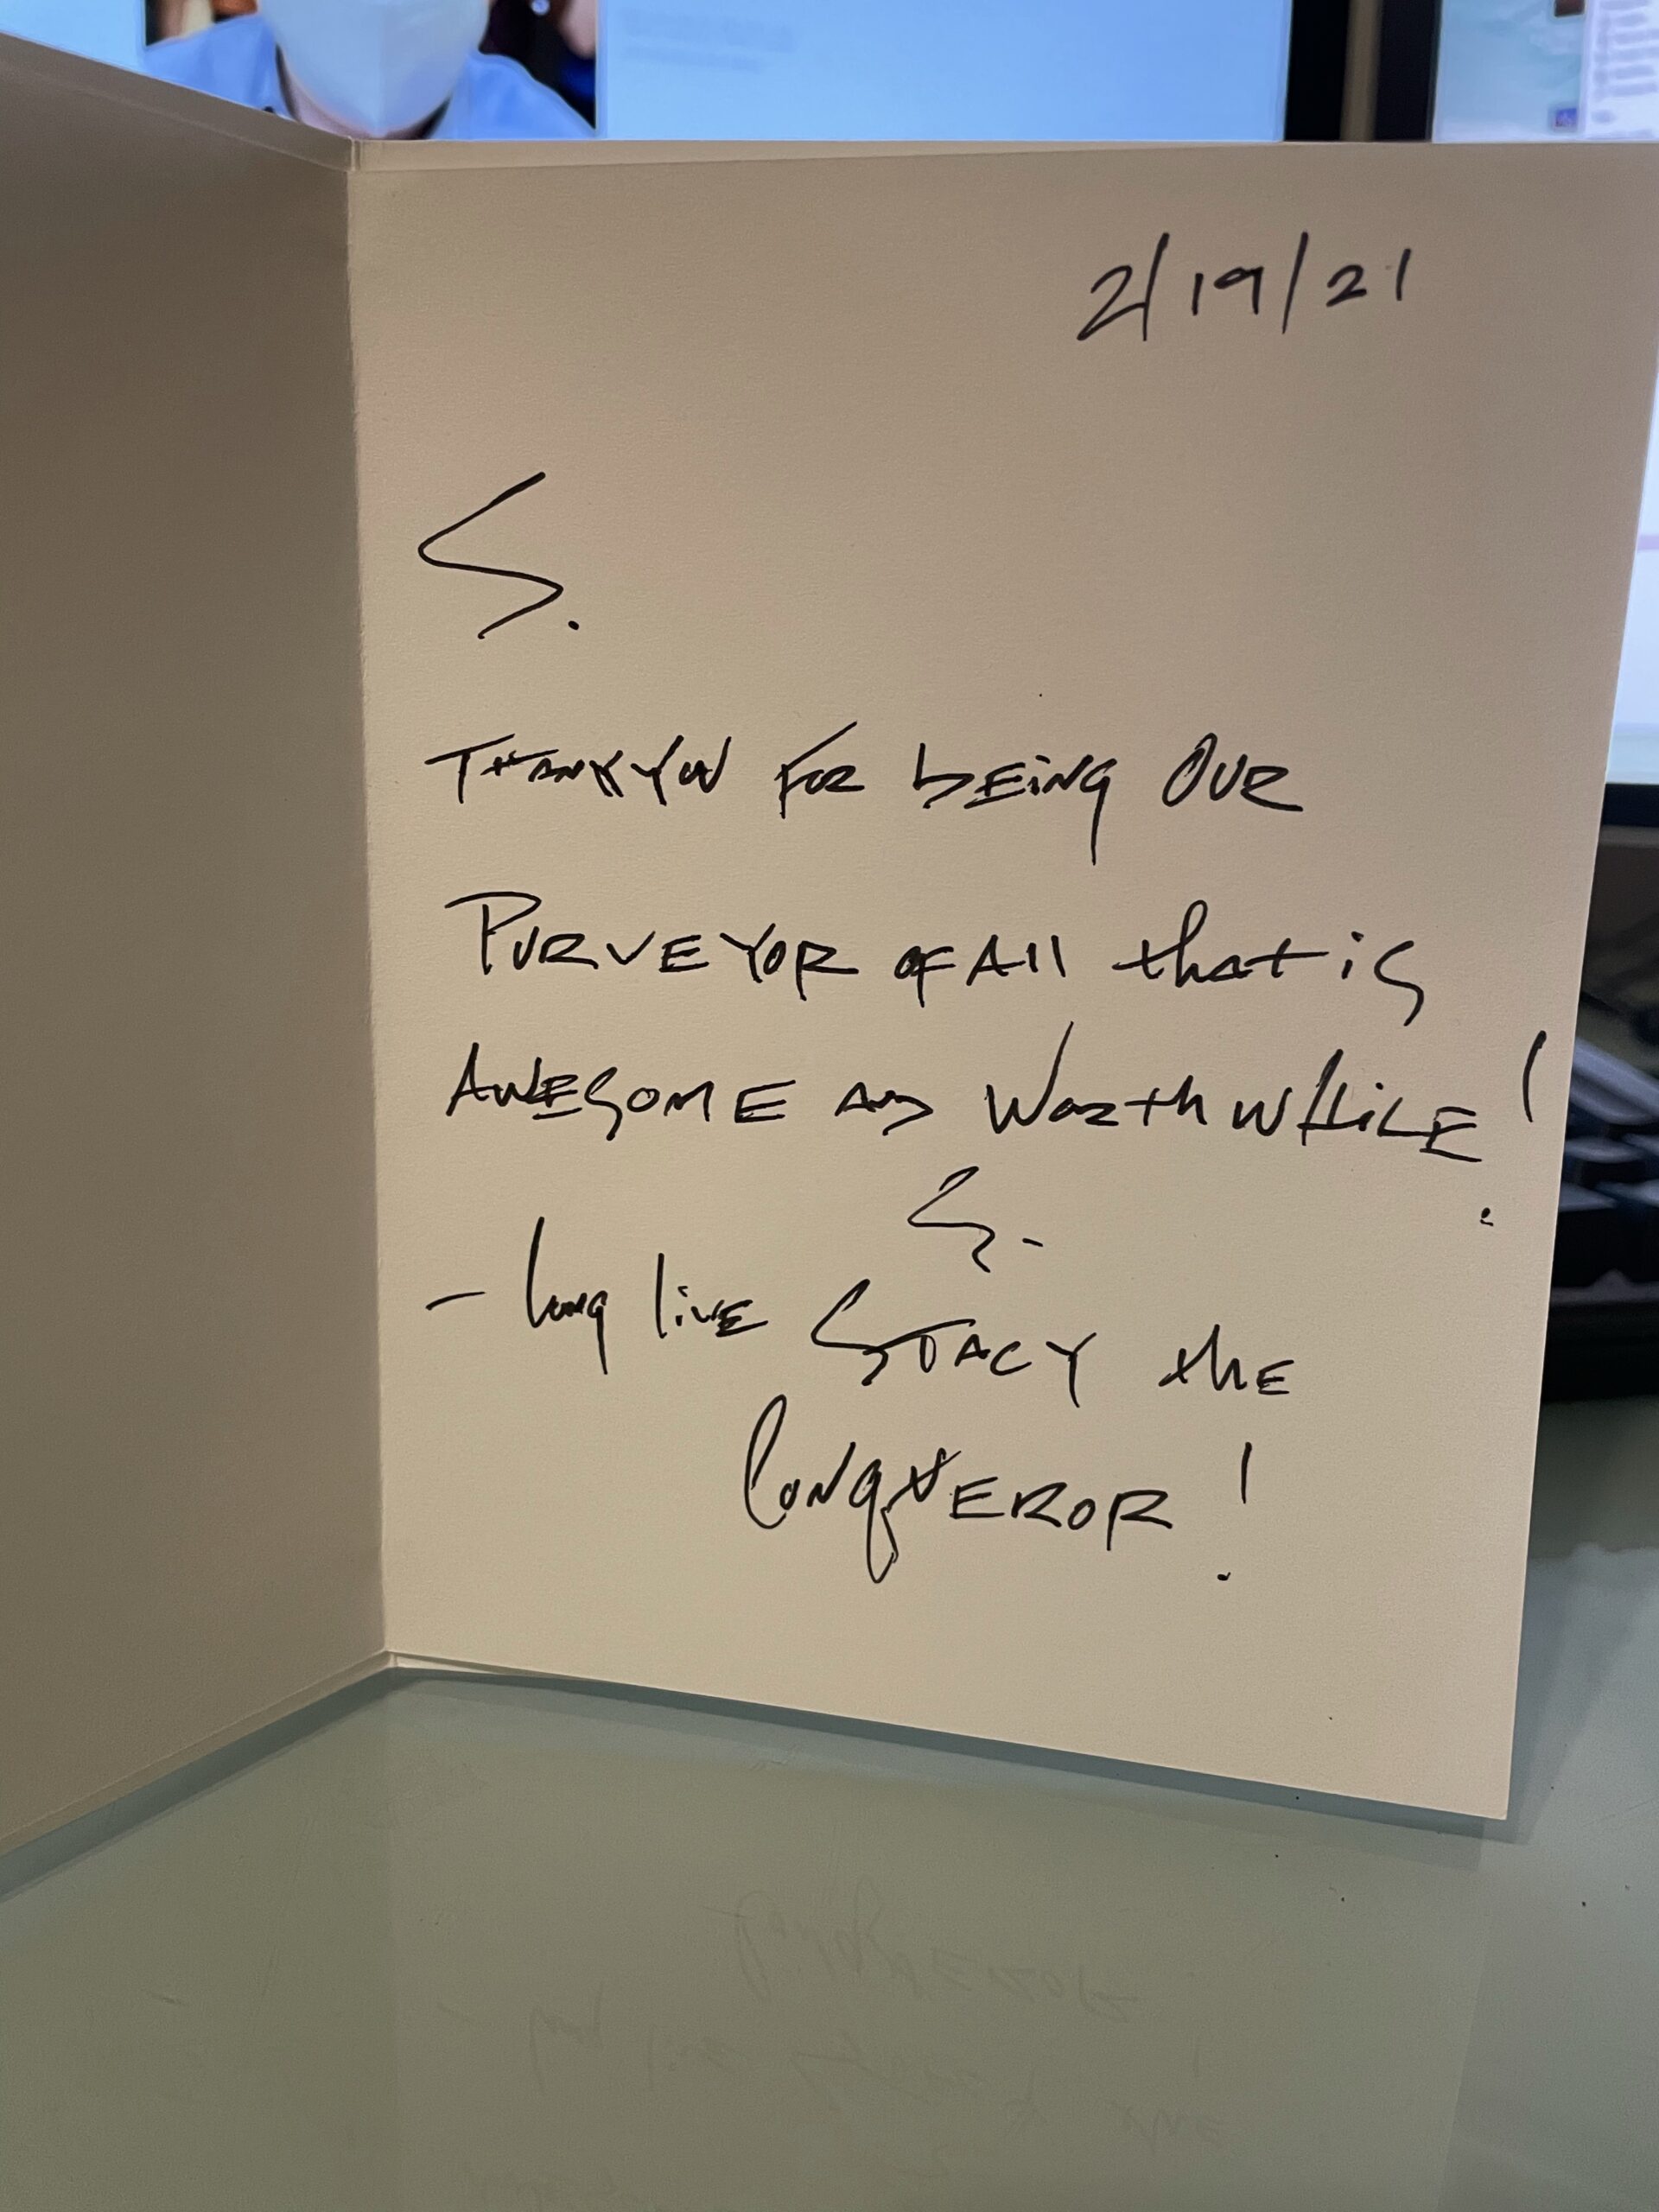 2/19/21
S.
THANK YOU FOR bEiNg OUR
PURVEYOR OF All that is
AWESOME AND WORthWHiLE!
S.
- long livE STACY thE
CONqUEROR!